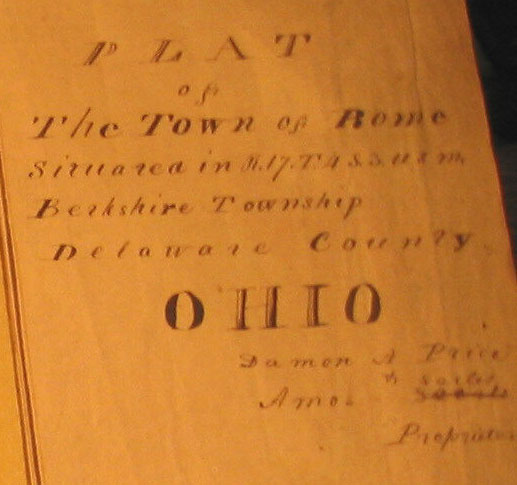 PLAT
of
The Town of Rome
Situated in R.17.T.4 S.3.U.S.M.
Berkshire Township
Delaware County
OHIO
Damon A Price
&
Amos
Proprietors